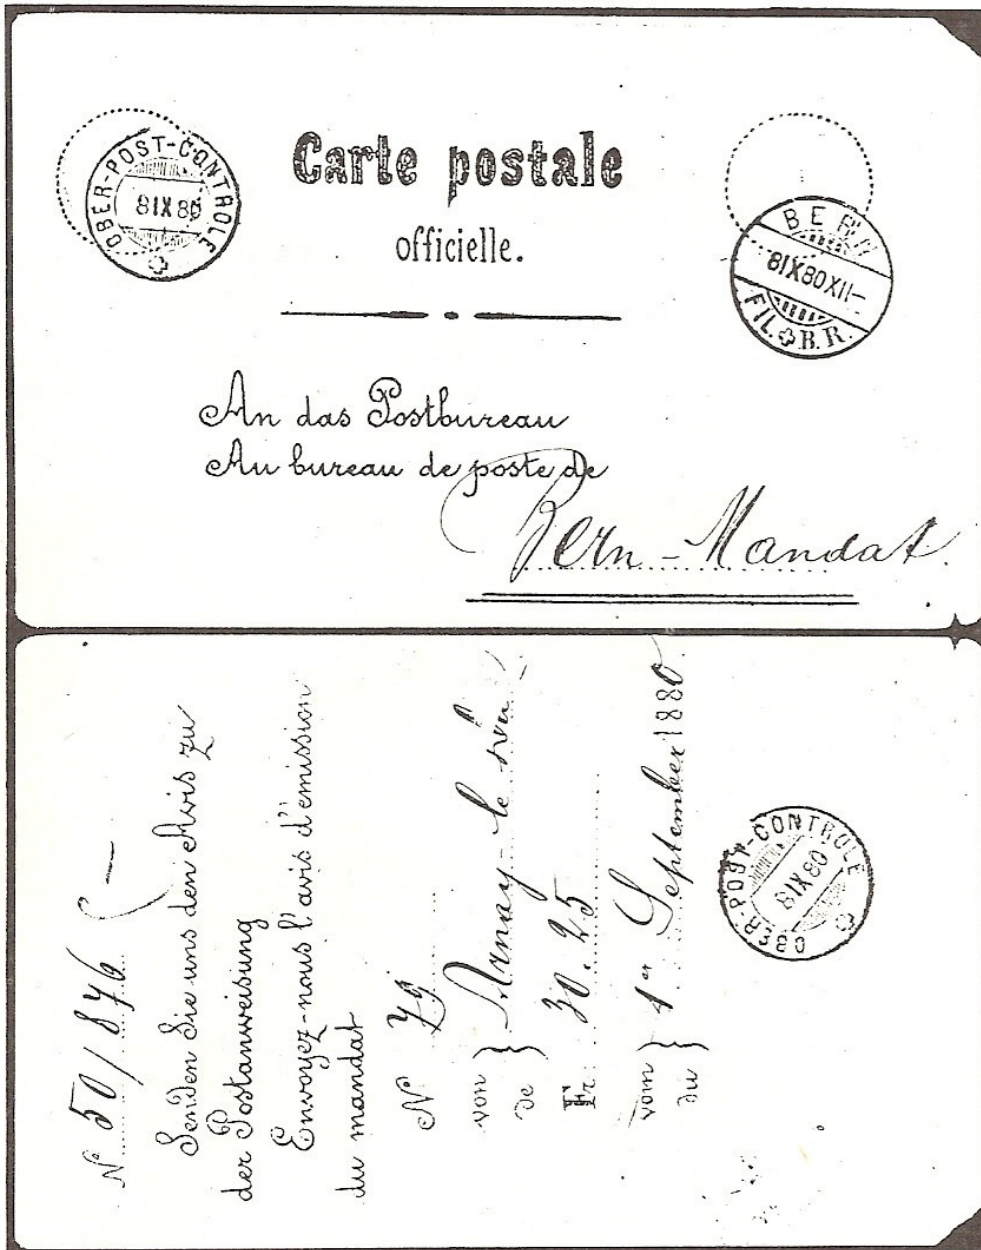 Carte postale
officielle.
OBER-POST-CONTROLE
8 IX 80
BERN
8 IX 80 XII–
FIL. B.R.
An das Postbureau
Au bureau de poste de
Bern-Mandat.
N° 50/876
Senden Sie uns den Avis zu
der Postanweisung
Envoyez-nous l'avis d'émission
du mandat
N° 79
von
de } Arnay-le
Fr. 30.25
vom
du } 1er September 1880.
OBER-POST-CONTROLE
8 IX 80